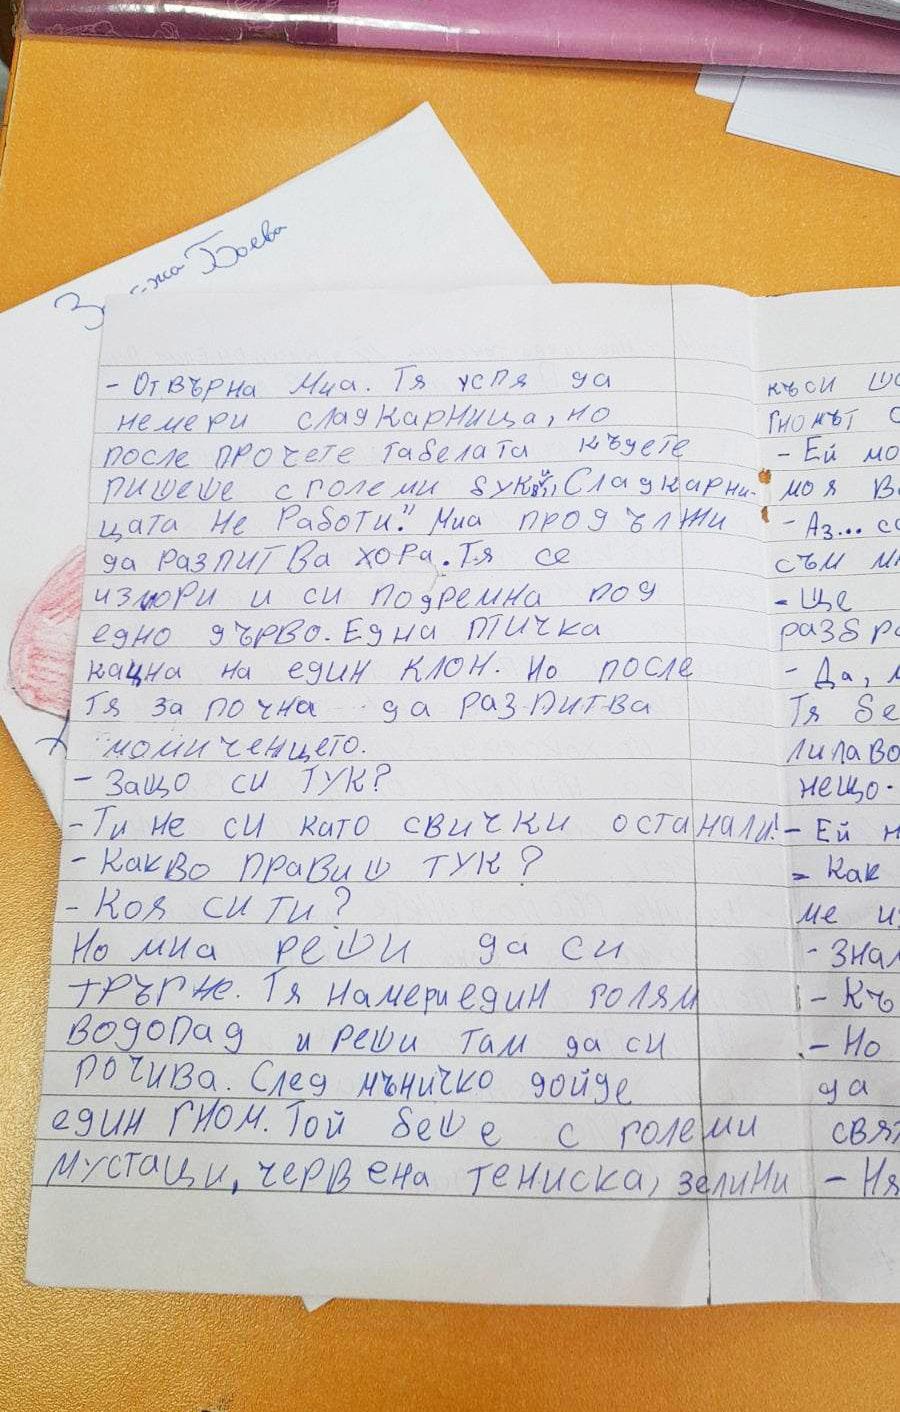 Боева
- Отвърна Миа. Тя успя да
немери сладкарница, но
после прочете табелата където
пишеше с големи букви „Сладкарни-
цата не работи." Миа продължи
да разпитва хора. Тя се
измори и си подремна под
едно дърво. Една птичка
кацна на един клон. Но после
тя започна да разпитва
момиченцето.
- Защо си тук?
- Ти не си като свички останали!
- Какво правиш тук?
- Коя си ти?
Но миа реши да си
тръгне. Тя намери един голям
водопад и реши там да си
почива. След мъничко дойде
един гном. Той беше с големи
мустаци, червена тениска, зелини
къси
гномът
- Ей
моя
- Аз...
съм
- Ще
- Да,
Тя
лилаво
нещо.
- Ей
- Как
ме
-
- Къ
- Но
да
- Ня